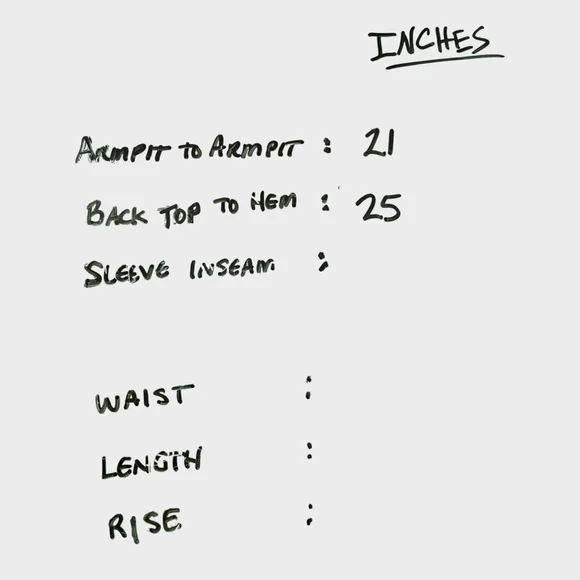 INCHES
ARMPIT TO ARMPIT : 21
BACK TOP TO HEM : 25
SLEEVE INSEAM :
WAIST :
LENGTH :
RISE :